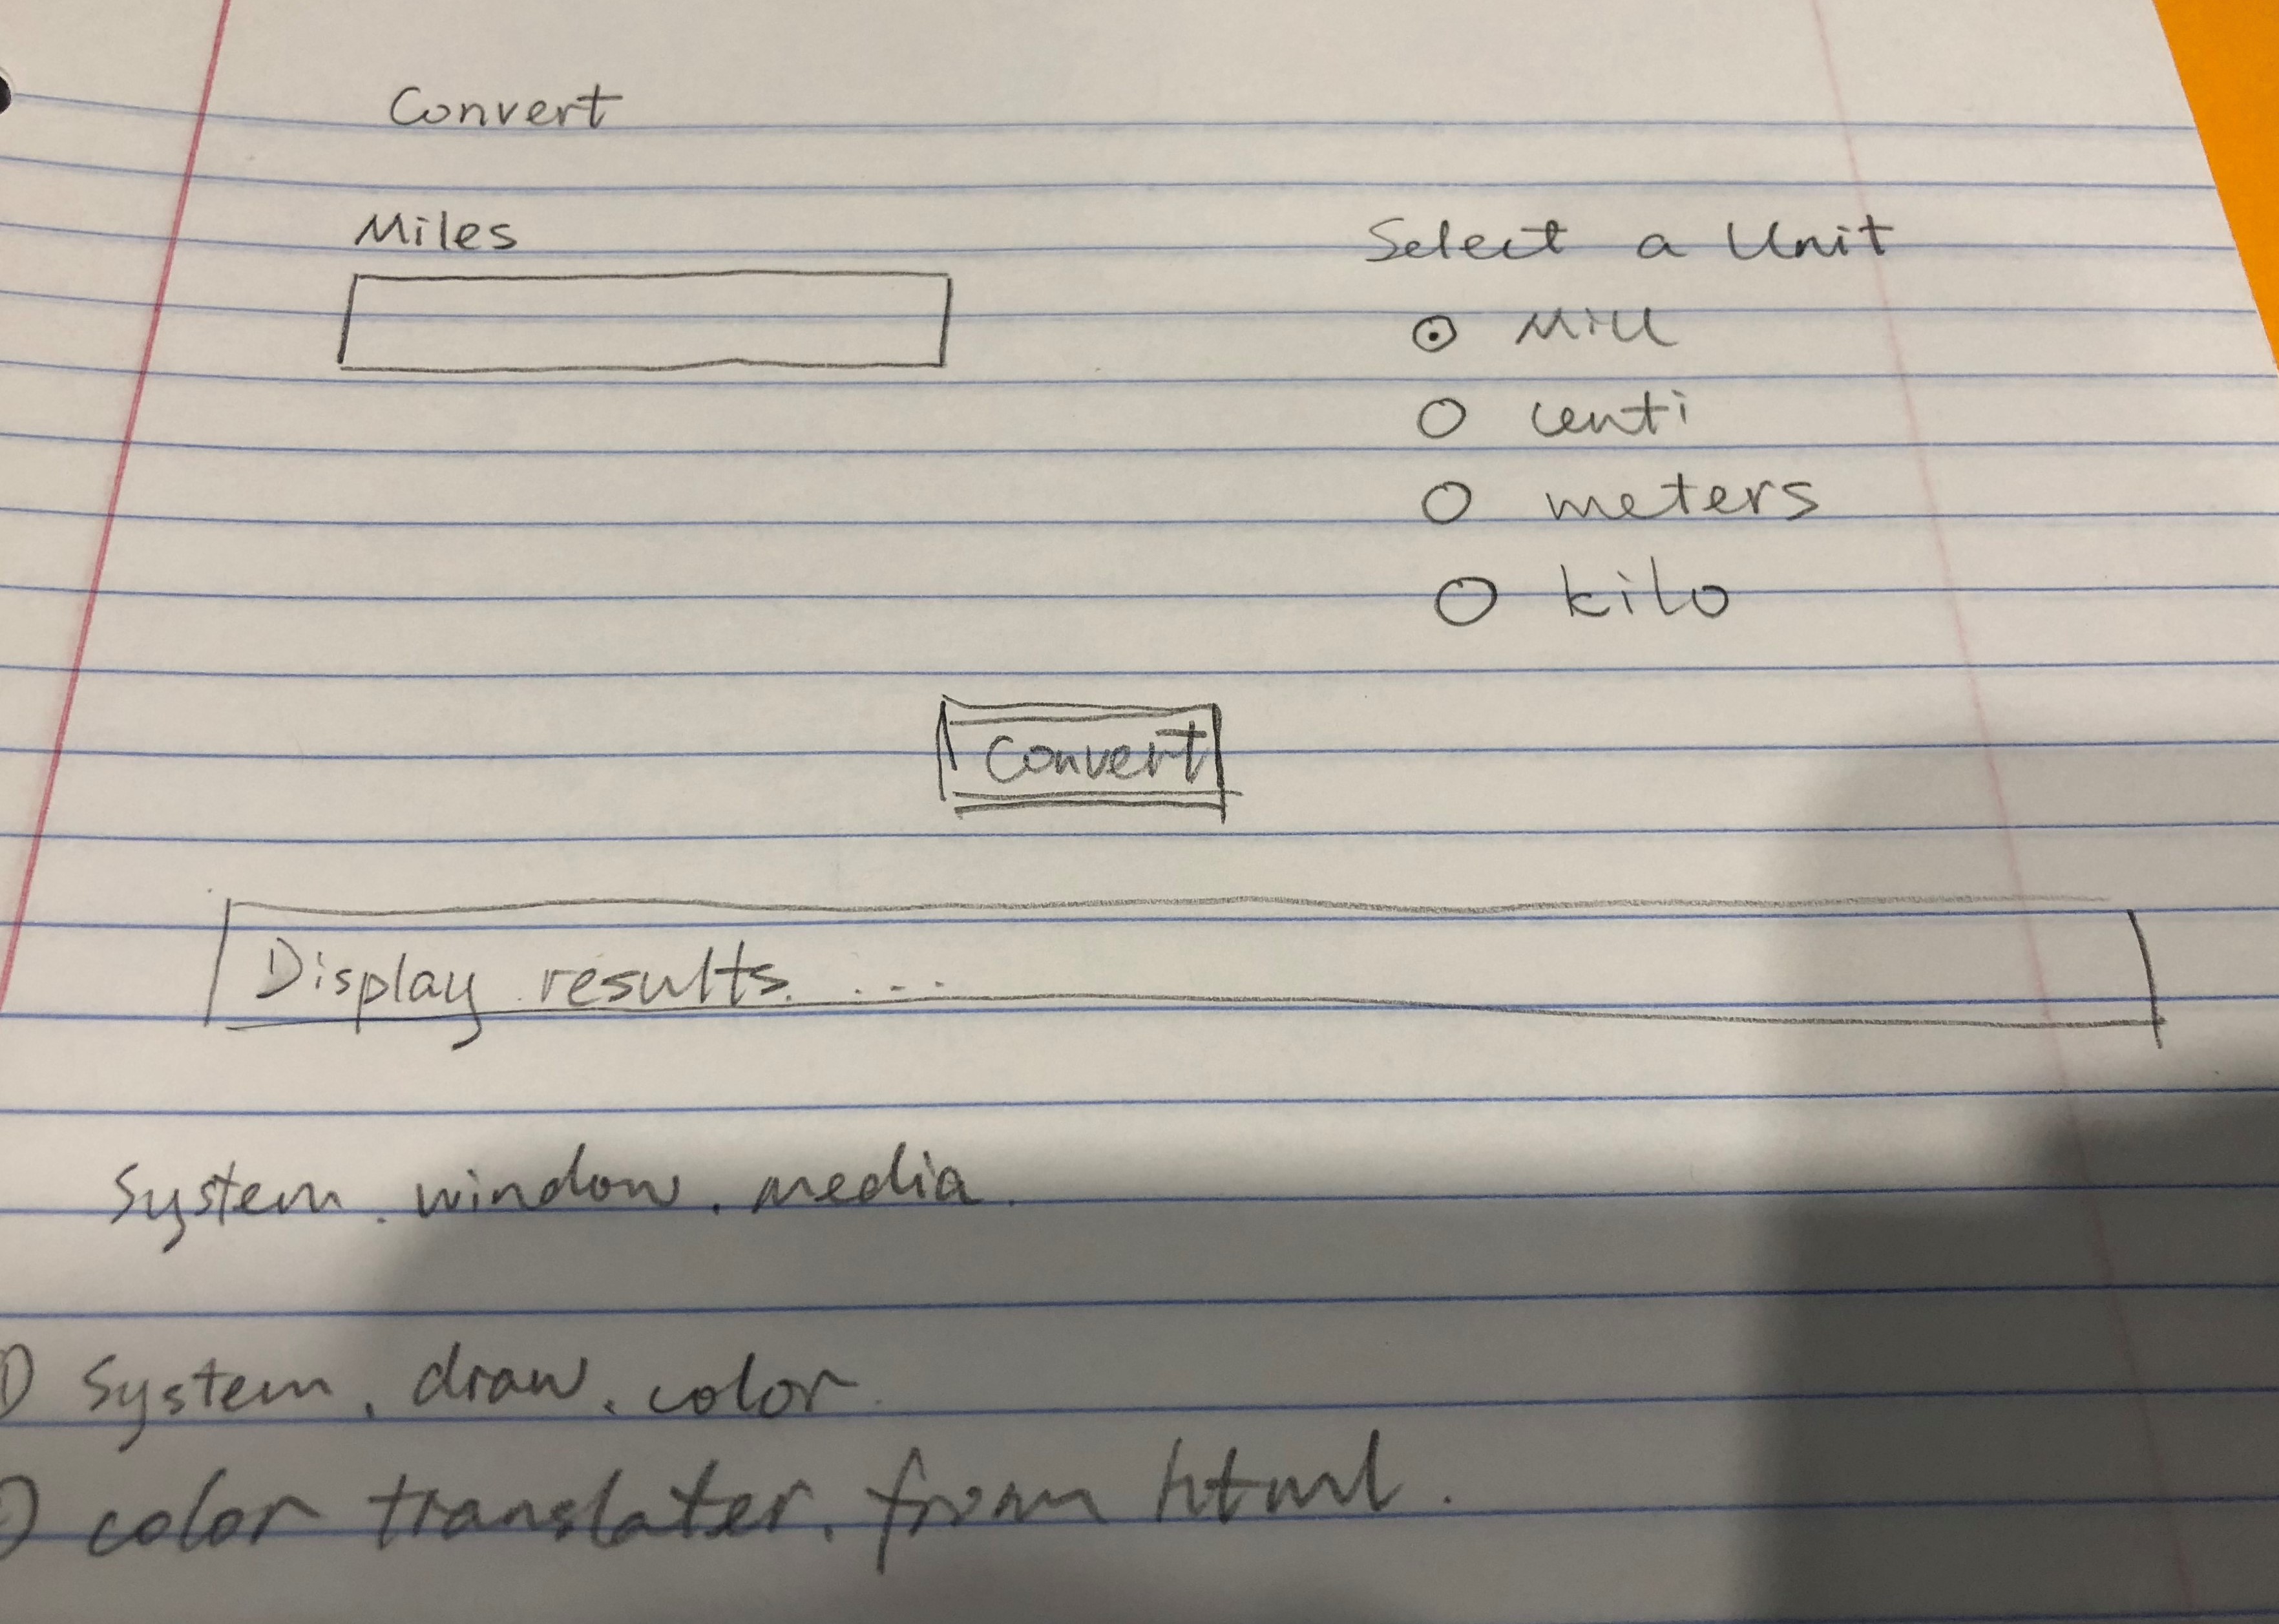 Convert
Miles
Select a Unit
Mill
centi
meters
kilo
Convert
Display results. ...
System. window. media.
1) System. draw. color.
color translater. from html.